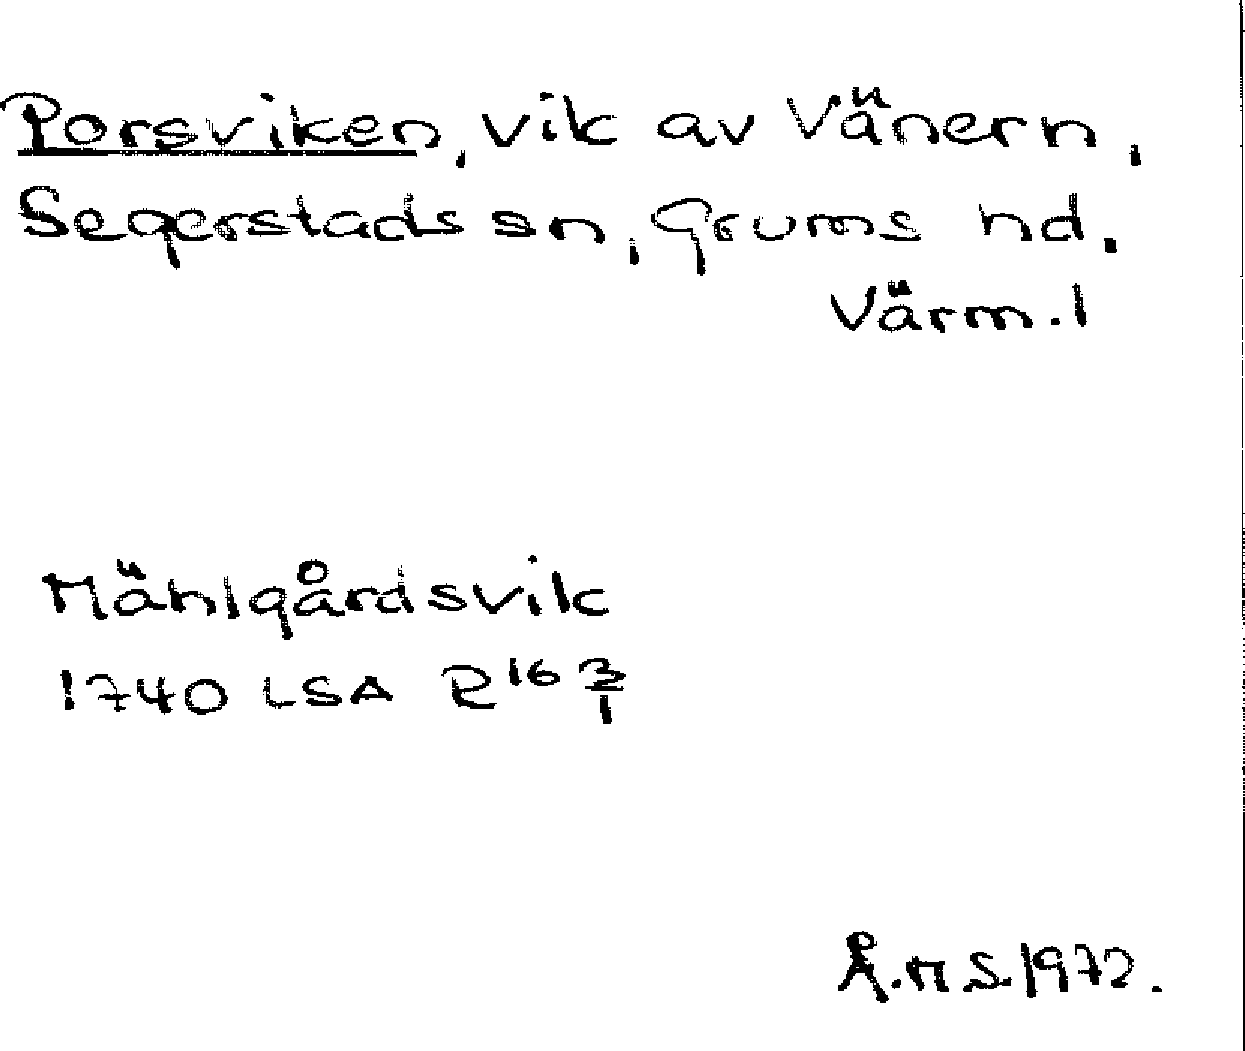 Porsviken, vik av Vänern,
Segerstads sn, Grums hd.
Värm. l
Mähl­gårdsvik
1740 LSA R16 3/1
Å.M S. 1972.